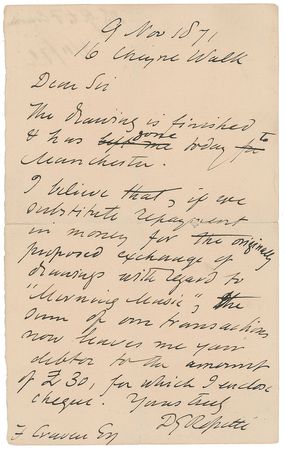 9 Nov 1871
16 Cheyne Walk
Dear Sir
The drawing is finished
& has left me gone today for to
Manchester.
I believe that, if we
substitute repayment
in money for the originally
proposed exchange of
drawings with regard to
"Morning Music", the
sum of our transactions
now leaves me your
debtor to the amount
of £30, for which I enclose
cheque. Yours truly
DG Rossetti
F Craven Esq